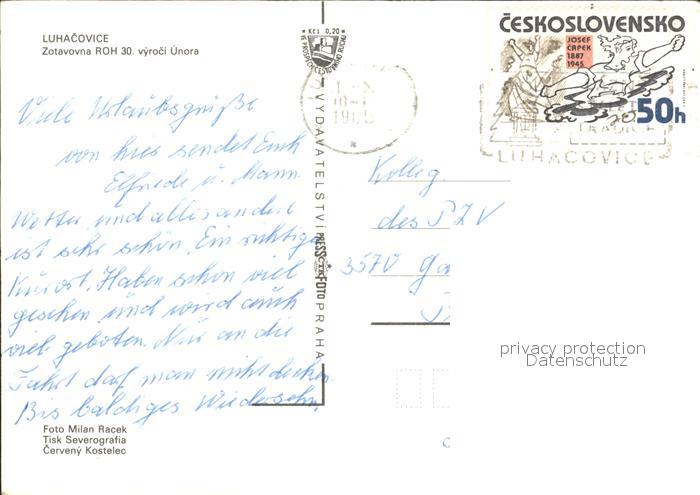 LUHAČOVICE
Zotavovna ROH 30. výročí Února
Kčs 0,20
ČESKOSLOVENSKO
JOSEF
ČAPEK
1887
1945
50h
LUHAČOVICE
Viele Urlaubsgrüße
von hier sendet Euch
Elfriede u. Mann.
Wetter und alles andere
ist sehr schön. Ein richtiger
Kurort. Haben schon viel
gesehen und wird auch
viel geboten. Nur an die
Fahrt darf man nicht denken.
Bis baldiges Wiedersehn.
VYDAVATELSTVÍ PRESSFOTO PRAHA
Kolleg
des PZV
3570 Ga
privacy protection
Datenschutz
Foto Milan Racek
Tisk Severografia
Červený Kostelec